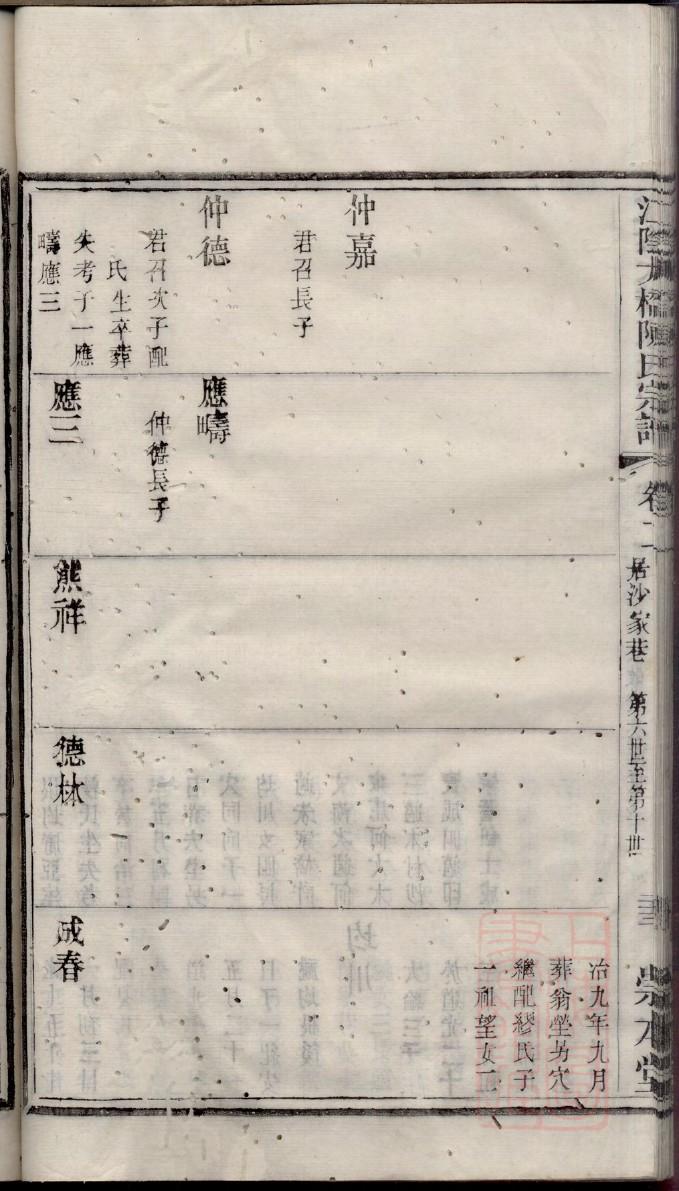 江陰大橋陳氏宗譜
卷二
居沙家巷
第六世至第十世
崇本堂
仲嘉
君召長子
仲德
君召次子配
氏生卒葬
失考子一應
疇應三
應疇
仲德長子
應三
熊祥
德林
治九年九月
葬翁塋另穴
繼配繆氏子
一祉望女二
成春